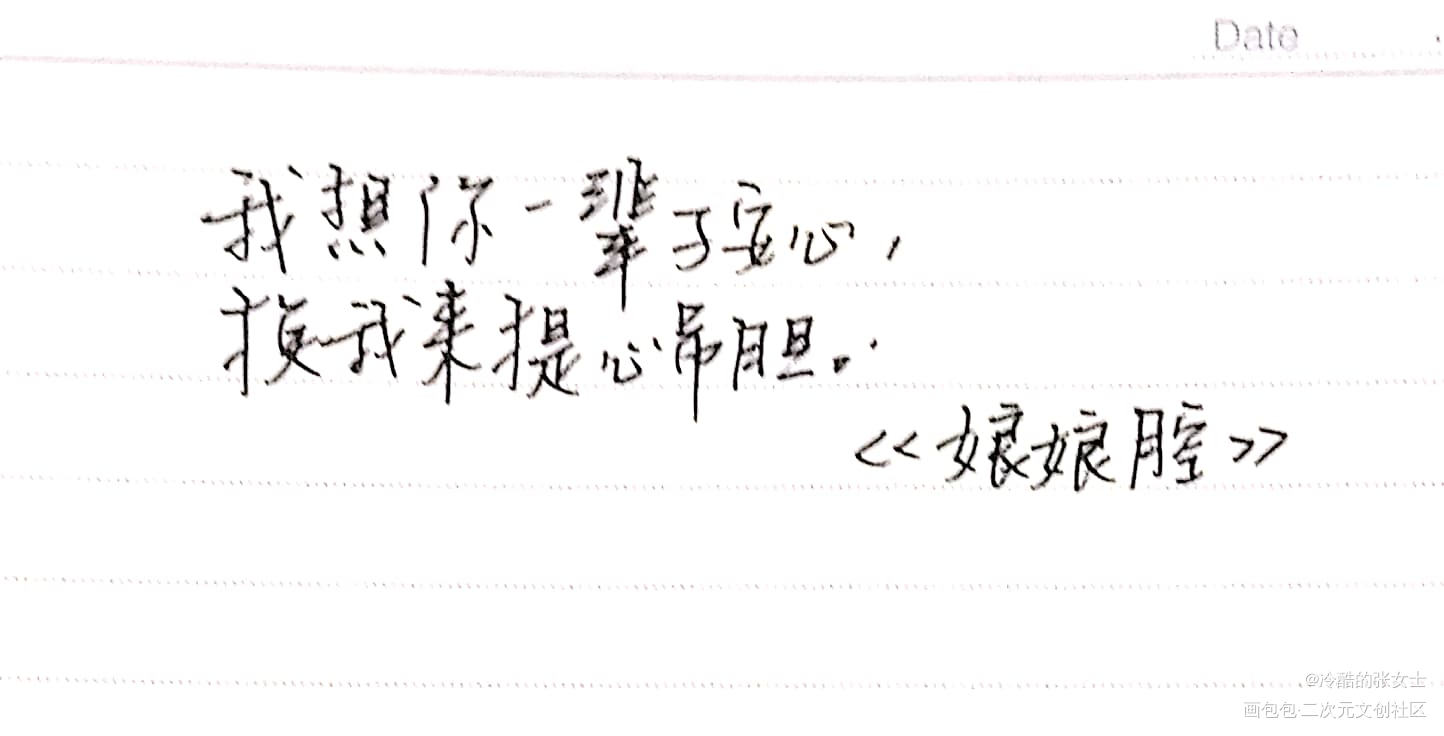 Date
我想你一辈子安心，
换我来提心吊胆。
<<娘娘腔>>
@冷酷的张女士
画包包·二次元文创社区